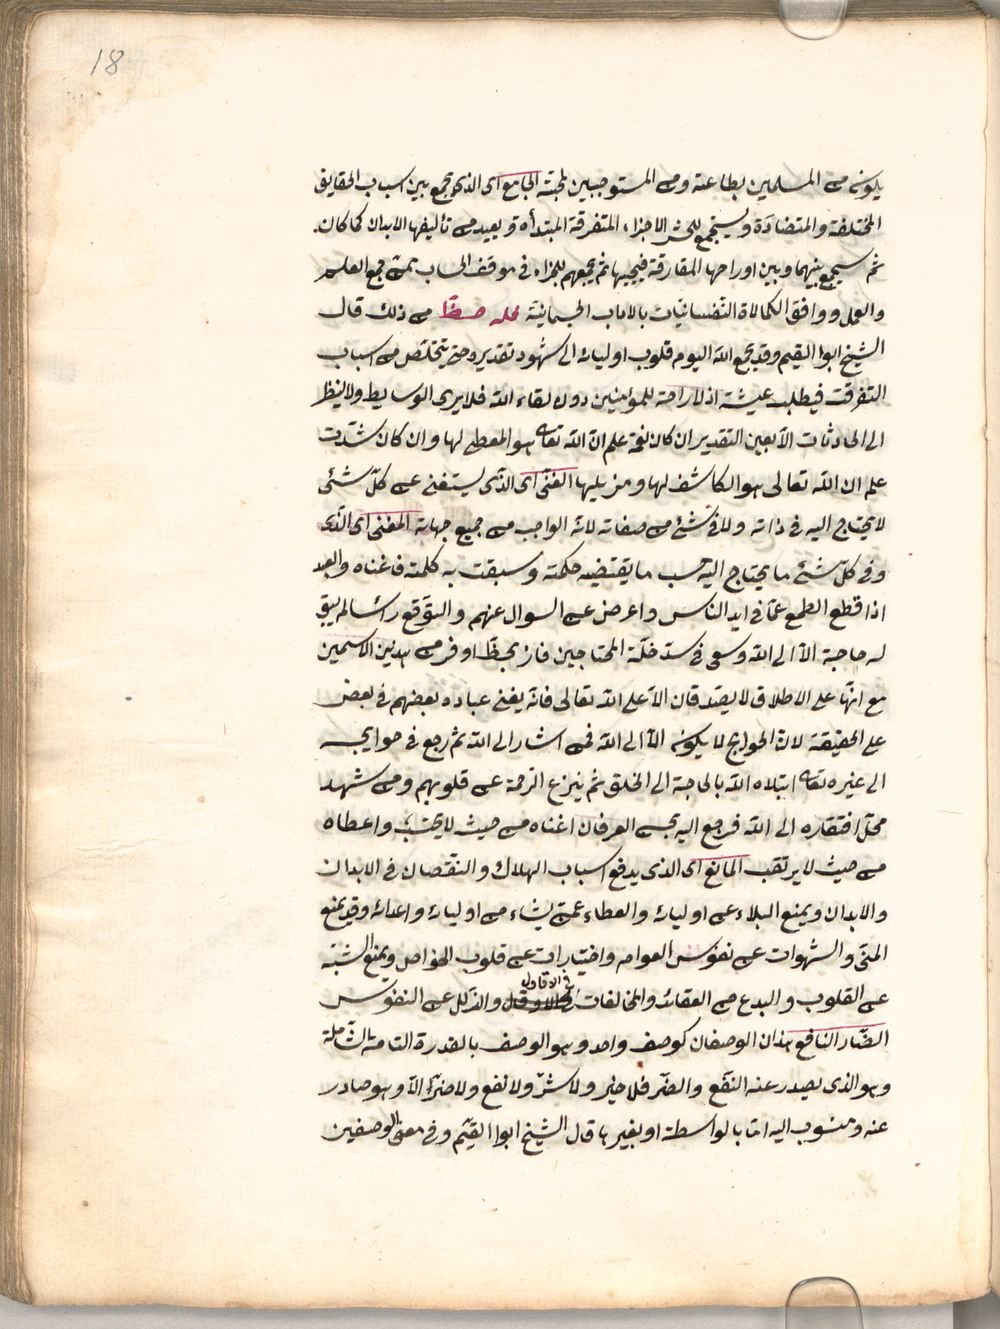 18
يكون من المسلمين بطاعته ومن المستوجبين لمحبته الجامع اى الذى يجمع بين اسباب الحقايق
المختلفة والمتضادة ويستجمع للحشر الاجزاء المتفرقة المبتدأة ويعيد من تأليفها الابدان كما كان
ثم سيجمع بينهما وبين اوراحها المفارقة فيحييها ثم يجمعهم للجزاء فى موقف الحساب فمن جمع العلم
والعمل ووافق الكمالاة النفسانيات بالاداب الجسمانية فله حظا من ذلك قال
الشيخ ابوا القيم وقد يجمع الله اليوم قلوب اوليائه الى شهود تقديره حتى يتخلص من اسباب
التفرقة فيطلب عيشة اذ لا راحة للمؤمنين دون لقاء الله فلا يرى الوسايط ولا ينظر
الى الحادثات الا بعين التقدير ان كان نعمة علم ان الله تعالى هو المعطى لها وان كان شدت
علم ان الله تعالى هو الكاشف لها ومزيلها الغنى اى الذى يستغنى عن كل شئ
لا يحتاج اليه فى ذاته ولا فى شئ من صفاته لانه الواجب من جميع جهاته المغنى اى الذى
وفى كل شئ ما يحتاج اليه حسب ما يقتضيه حكمته وسبقت به كلمته فاغناه والعبد
اذا قطع الطمع عما فى ايد الناس واعرض عن السوال عنهم والتوقع رأسا لم يبق
له حاجة الا الى الله وسعى فى سد خلة المحتاجين فاز بحظ اوفر من هذين الاسمين
مع انهما على الاطلاق لا يصدقان الا على الله تعالى فانه يغنى عباده بعضهم فى بعض
على الحقيقة لان الحوايج لا يكون الا الى الله فمن اشار الى الله ثم رجع فى حوايجه
الى غيره تعالى ابتلاه الله بالحاجة الى الخلق ثم ينزع الرحمة عن قلوبهم ومن شهد
محل افتقاره الى الله فرجع اليه بحسن العرفان اغناه من حيث لا يحتسب واعطاه
من حيث لا يرتقب المانع اى الذى يدفع اسباب الهلاك والنقصان فى الابدان
والابدان ويمنع البلاء عن اوليائه والعطاء عمن يشاء من اوليائه واعدائه وقد يمنع
المنى والشهوات عن نفوس العوام واختيارات عن قلوب الخواص ويمنع الشبه
عن القلوب والبدع من العقائد والمخالفات فى الاوقات والزلل عن النفوس
الضار النافع هذان الوصفان كوصف واحد وهو الوصف بالقدرة التامة الشاملة
وهو الذى يصدر عنه النفع والضر فلا خير ولا شر ولا نفع ولا ضر الا وهو صادر
عنه ومنسوب اليه اما بالواسطة او بغيرها قال الشيخ ابوا القيم وفى معنى الوصفين